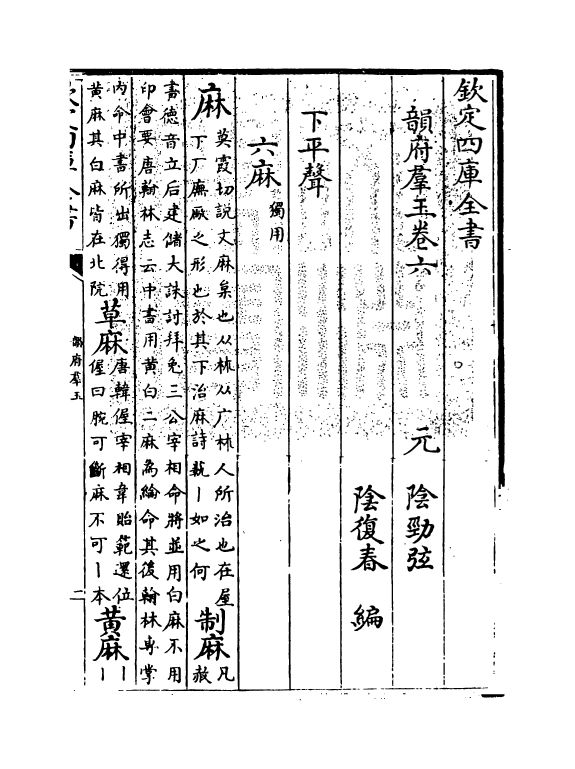 欽定四庫全書
韻府羣玉卷六
元 陰勁弦
陰復春 編
下平聲
六麻獨用
麻莫霞切說文麻枲也从𣏟从广𣏟人所治也在屋
下厂廡厰之形也於其下治麻詩蓺丨如之何制麻凡赦
書德音立后建儲大誅討拜免三公宰相命將並用白麻不用
印會要唐翰林志云中書用黄白二麻為綸命其後翰林專掌
內命中書所出獨得用
黄麻其白麻皆在北院草麻唐韓偓宰相韋貽範還位
偓曰腕可斷麻不可丨本黄麻丨丨
韻府羣玉
二